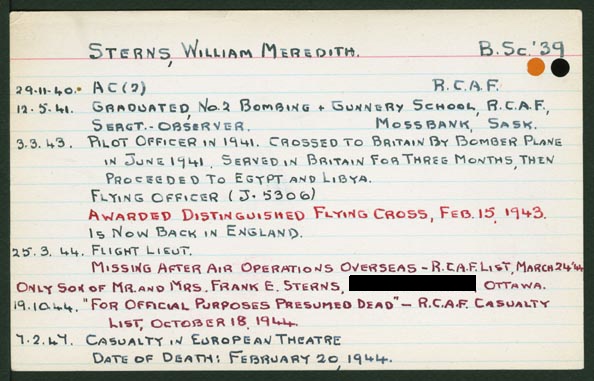 STERNS, WILLIAM MEREDITH. B.Sc. '39
29.11.40. AC(2) R.C.A.F.
12.5.41. GRADUATED, No.2 BOMBING + GUNNERY SCHOOL, R.C.A.F.,
SERGT.-OBSERVER. MOSSBANK, SASK.
3.3.43. PILOT OFFICER IN 1941. CROSSED TO BRITAIN BY BOMBER PLANE
IN JUNE 1941. SERVED IN BRITAIN FOR THREE MONTHS, THEN
PROCEEDED TO EGYPT AND LIBYA.
FLYING OFFICER (J.5306)
AWARDED DISTINGUISHED FLYING CROSS, FEB. 15, 1943.
IS NOW BACK IN ENGLAND.
25.3.44. FLIGHT LIEUT.
MISSING AFTER AIR OPERATIONS OVERSEAS - R.C.A.F. LIST, MARCH 24 '44
ONLY SON OF MR. AND MRS. FRANK E. STERNS, OTTAWA.
19.10.44. "FOR OFFICIAL PURPOSES PRESUMED DEAD" - R.C.A.F. CASUALTY
LIST, OCTOBER 18, 1944.
7.2.47. CASUALTY IN EUROPEAN THEATRE
DATE OF DEATH: FEBRUARY 20, 1944.